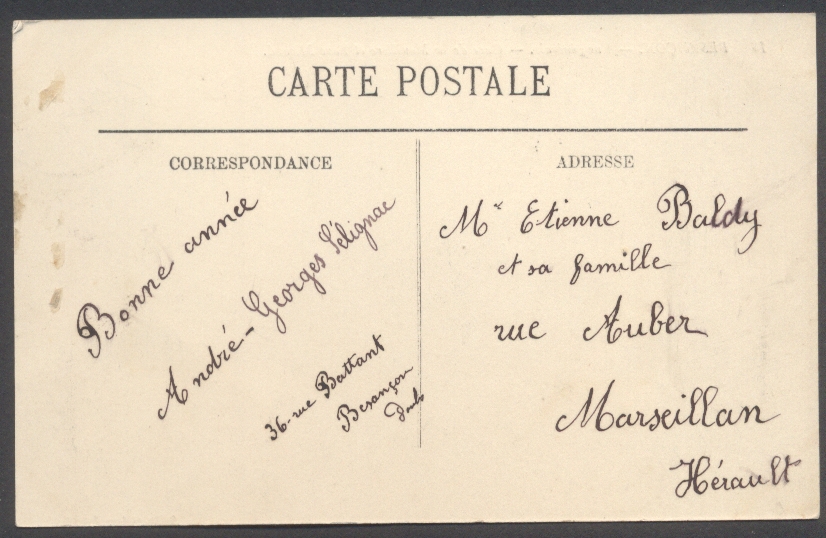 CARTE POSTALE
CORRESPONDANCE
Bonne année
André-Georges Sélignac
36 rue Battant
Besançon
Doubs
ADRESSE
Mr Etienne Baldy
et sa famille
rue Auber
Marseillan
Hérault